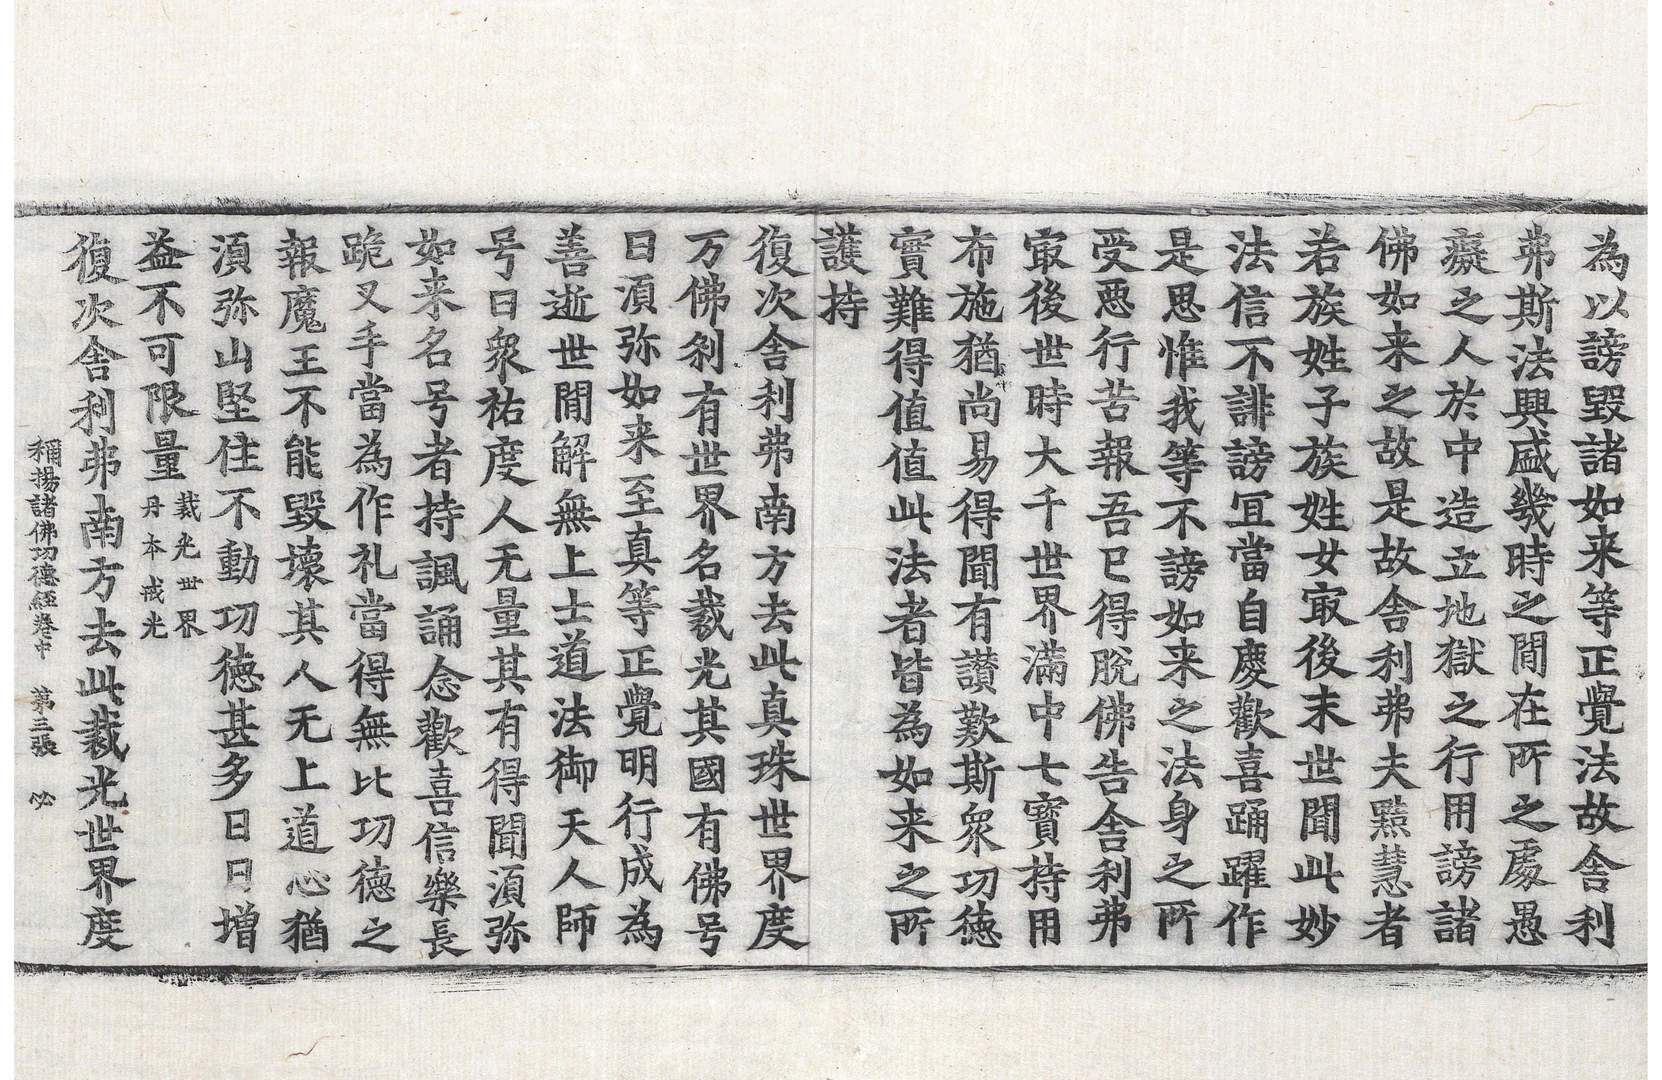 為以謗毀諸如来等正覺法故舍利
弗斯法興盛幾時之閒在所之處愚
癡之人於中造立地獄之行用謗諸
佛如来之故是故舍利弗夫黠慧者
若族姓子族姓女㝡後末世聞此妙
法信不誹謗冝當自慶歡喜踊躍作
是思惟我等不謗如来之法身之所
受惡行苦報吾已得脫佛告舍利弗
㝡後世時大千世界滿中七寶持用
布施猶尚易得聞有讚歎斯衆功德
實難得值值此法者皆為如来之所
護持
復次舍利弗南方去此真珠世界度
万佛刹有世界名㦲光其國有佛号
曰湏弥如来至真等正覺明行成為
善逝世閒解無上士道法御天人師
号曰衆祐度人无量其有得聞湏弥
如来名号者持諷誦念歡喜信樂長
跪叉手當為作礼當得無比功德之
報魔王不能毀壞其人无上道心猶
湏弥山堅住不動功德甚多日日增
益不可限量㦲光世界丹本戒光
復次舍利弗南方去此㦲光世界度
稱揚諸佛功德經卷中 第三張 必